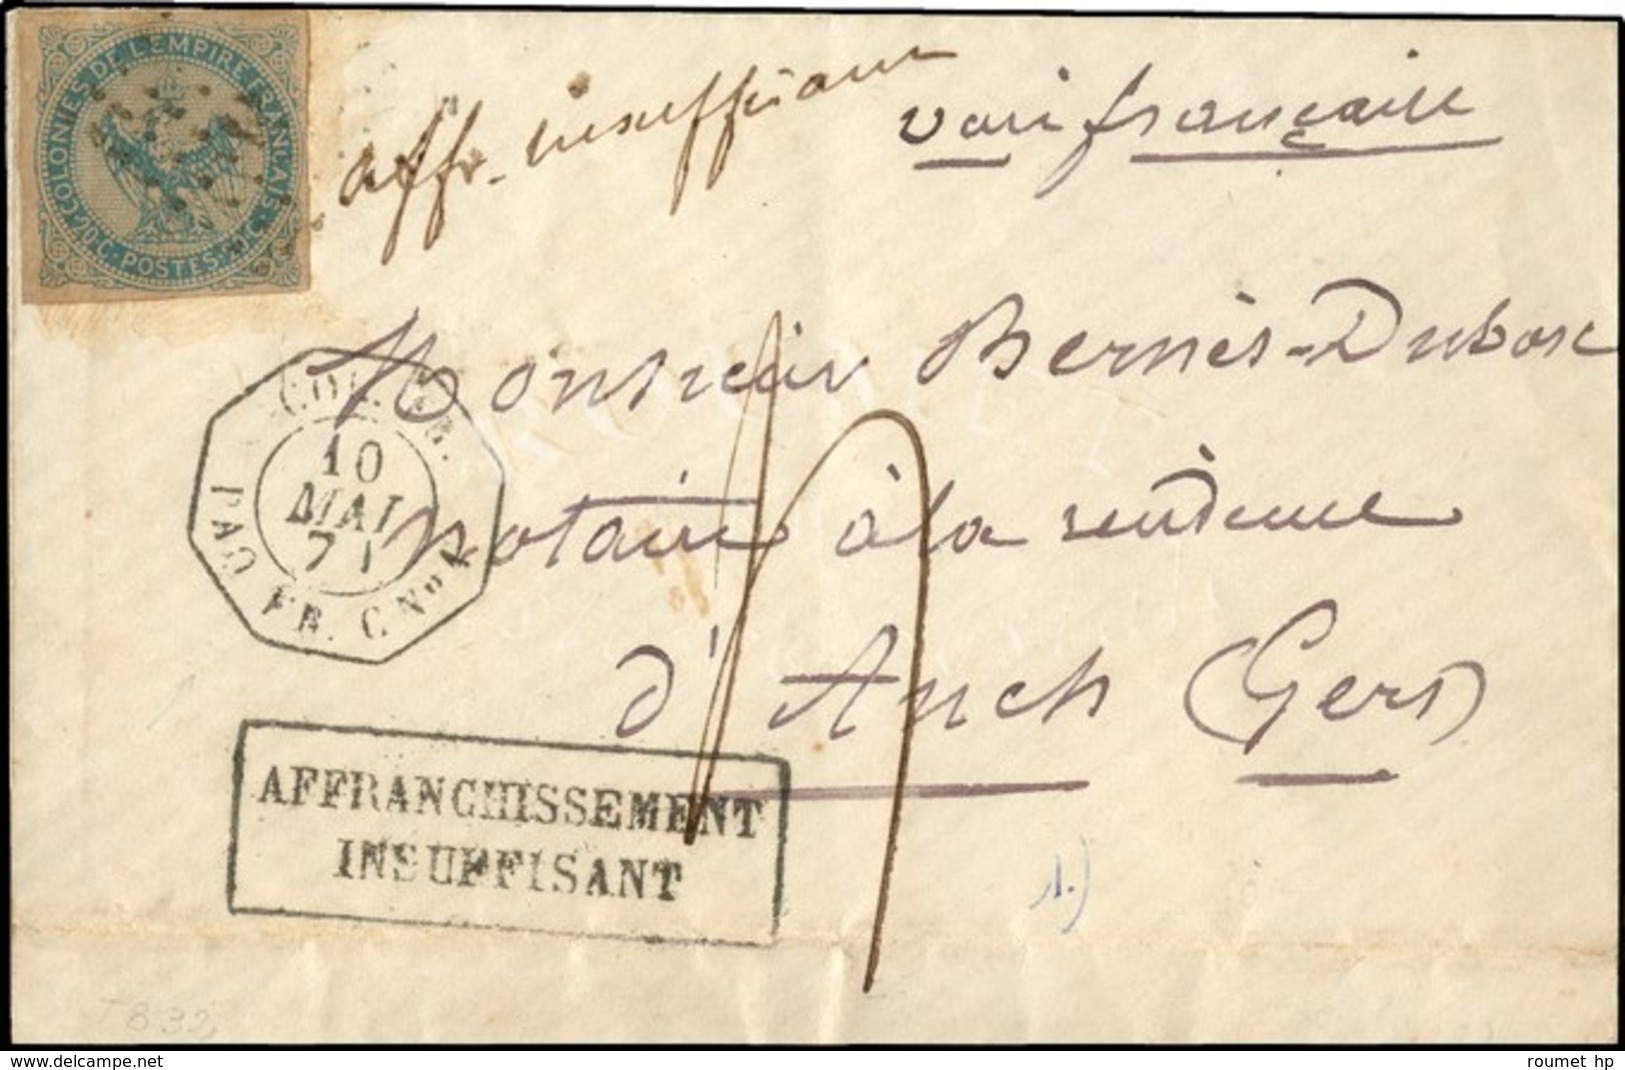 COLONIES DE L'EMPIRE FRANÇAIS
20.C. POSTES. 20.C.
aff. insuffisant
voie française
Monsieur Bernès-Dubosc
notaire à la résidence
d'Auch (Gers)
COL.
10
MAI
71
PAQ. FR. C Nº 4
AFFRANCHISSEMENT
INSUFFISANT
1.)
TB 32
www.delcampe.net
roumet hp